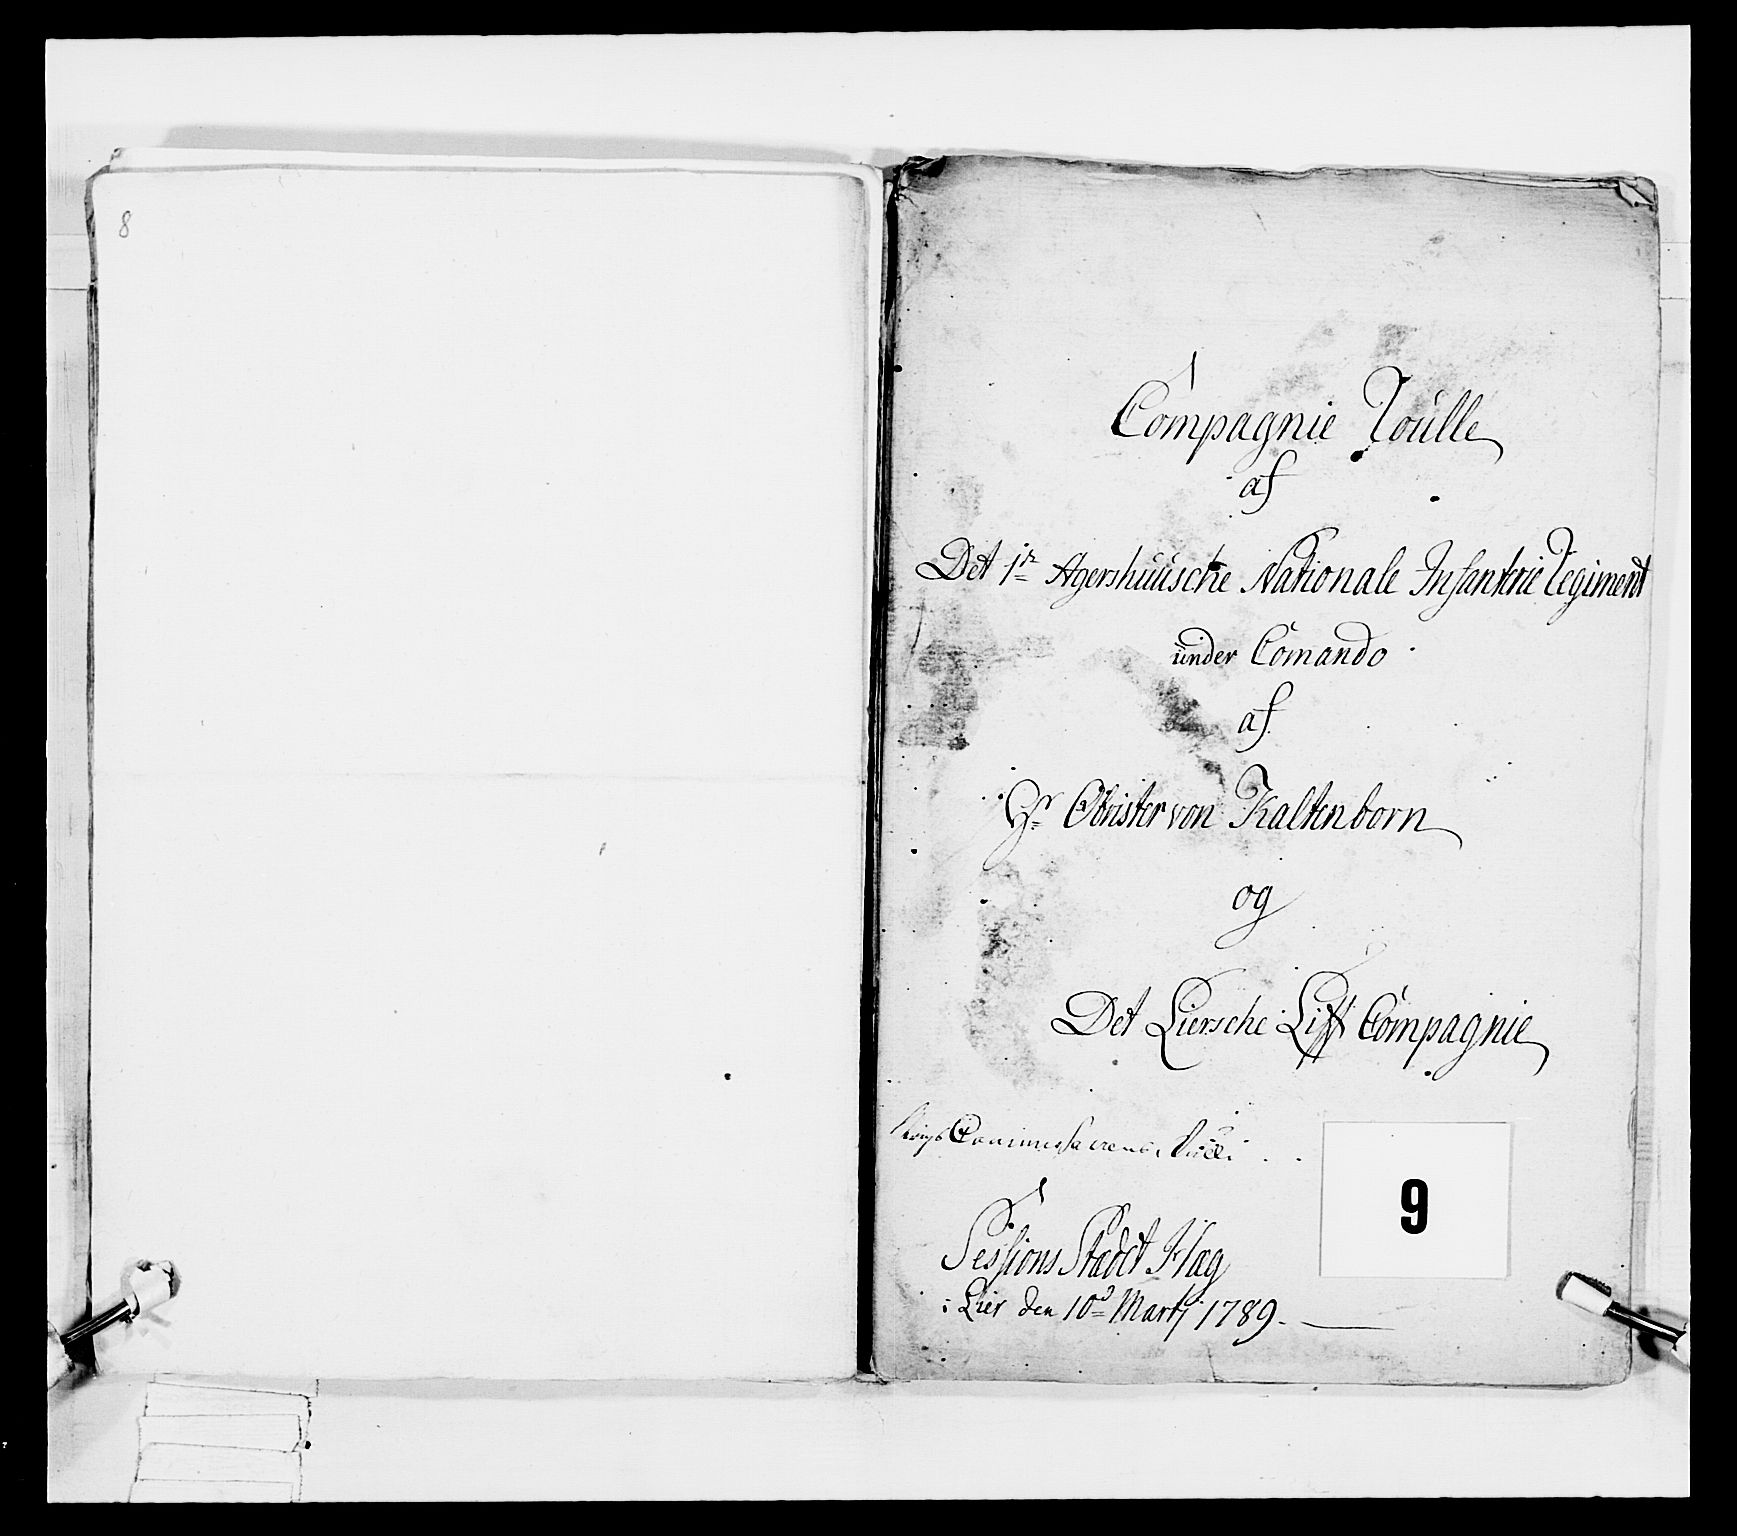 8
Compagnie Roülle
af
Det 1te Agershuusche Nationale Infanterie Regiment
under Comando
af
Hr Obrister von Kaltenborn
og
Det Liersche Lifft Compagnie
Krigs Commissairens Rulle
9
Sessions Stædet Hæg
i Lier den 10d Martj 1789.